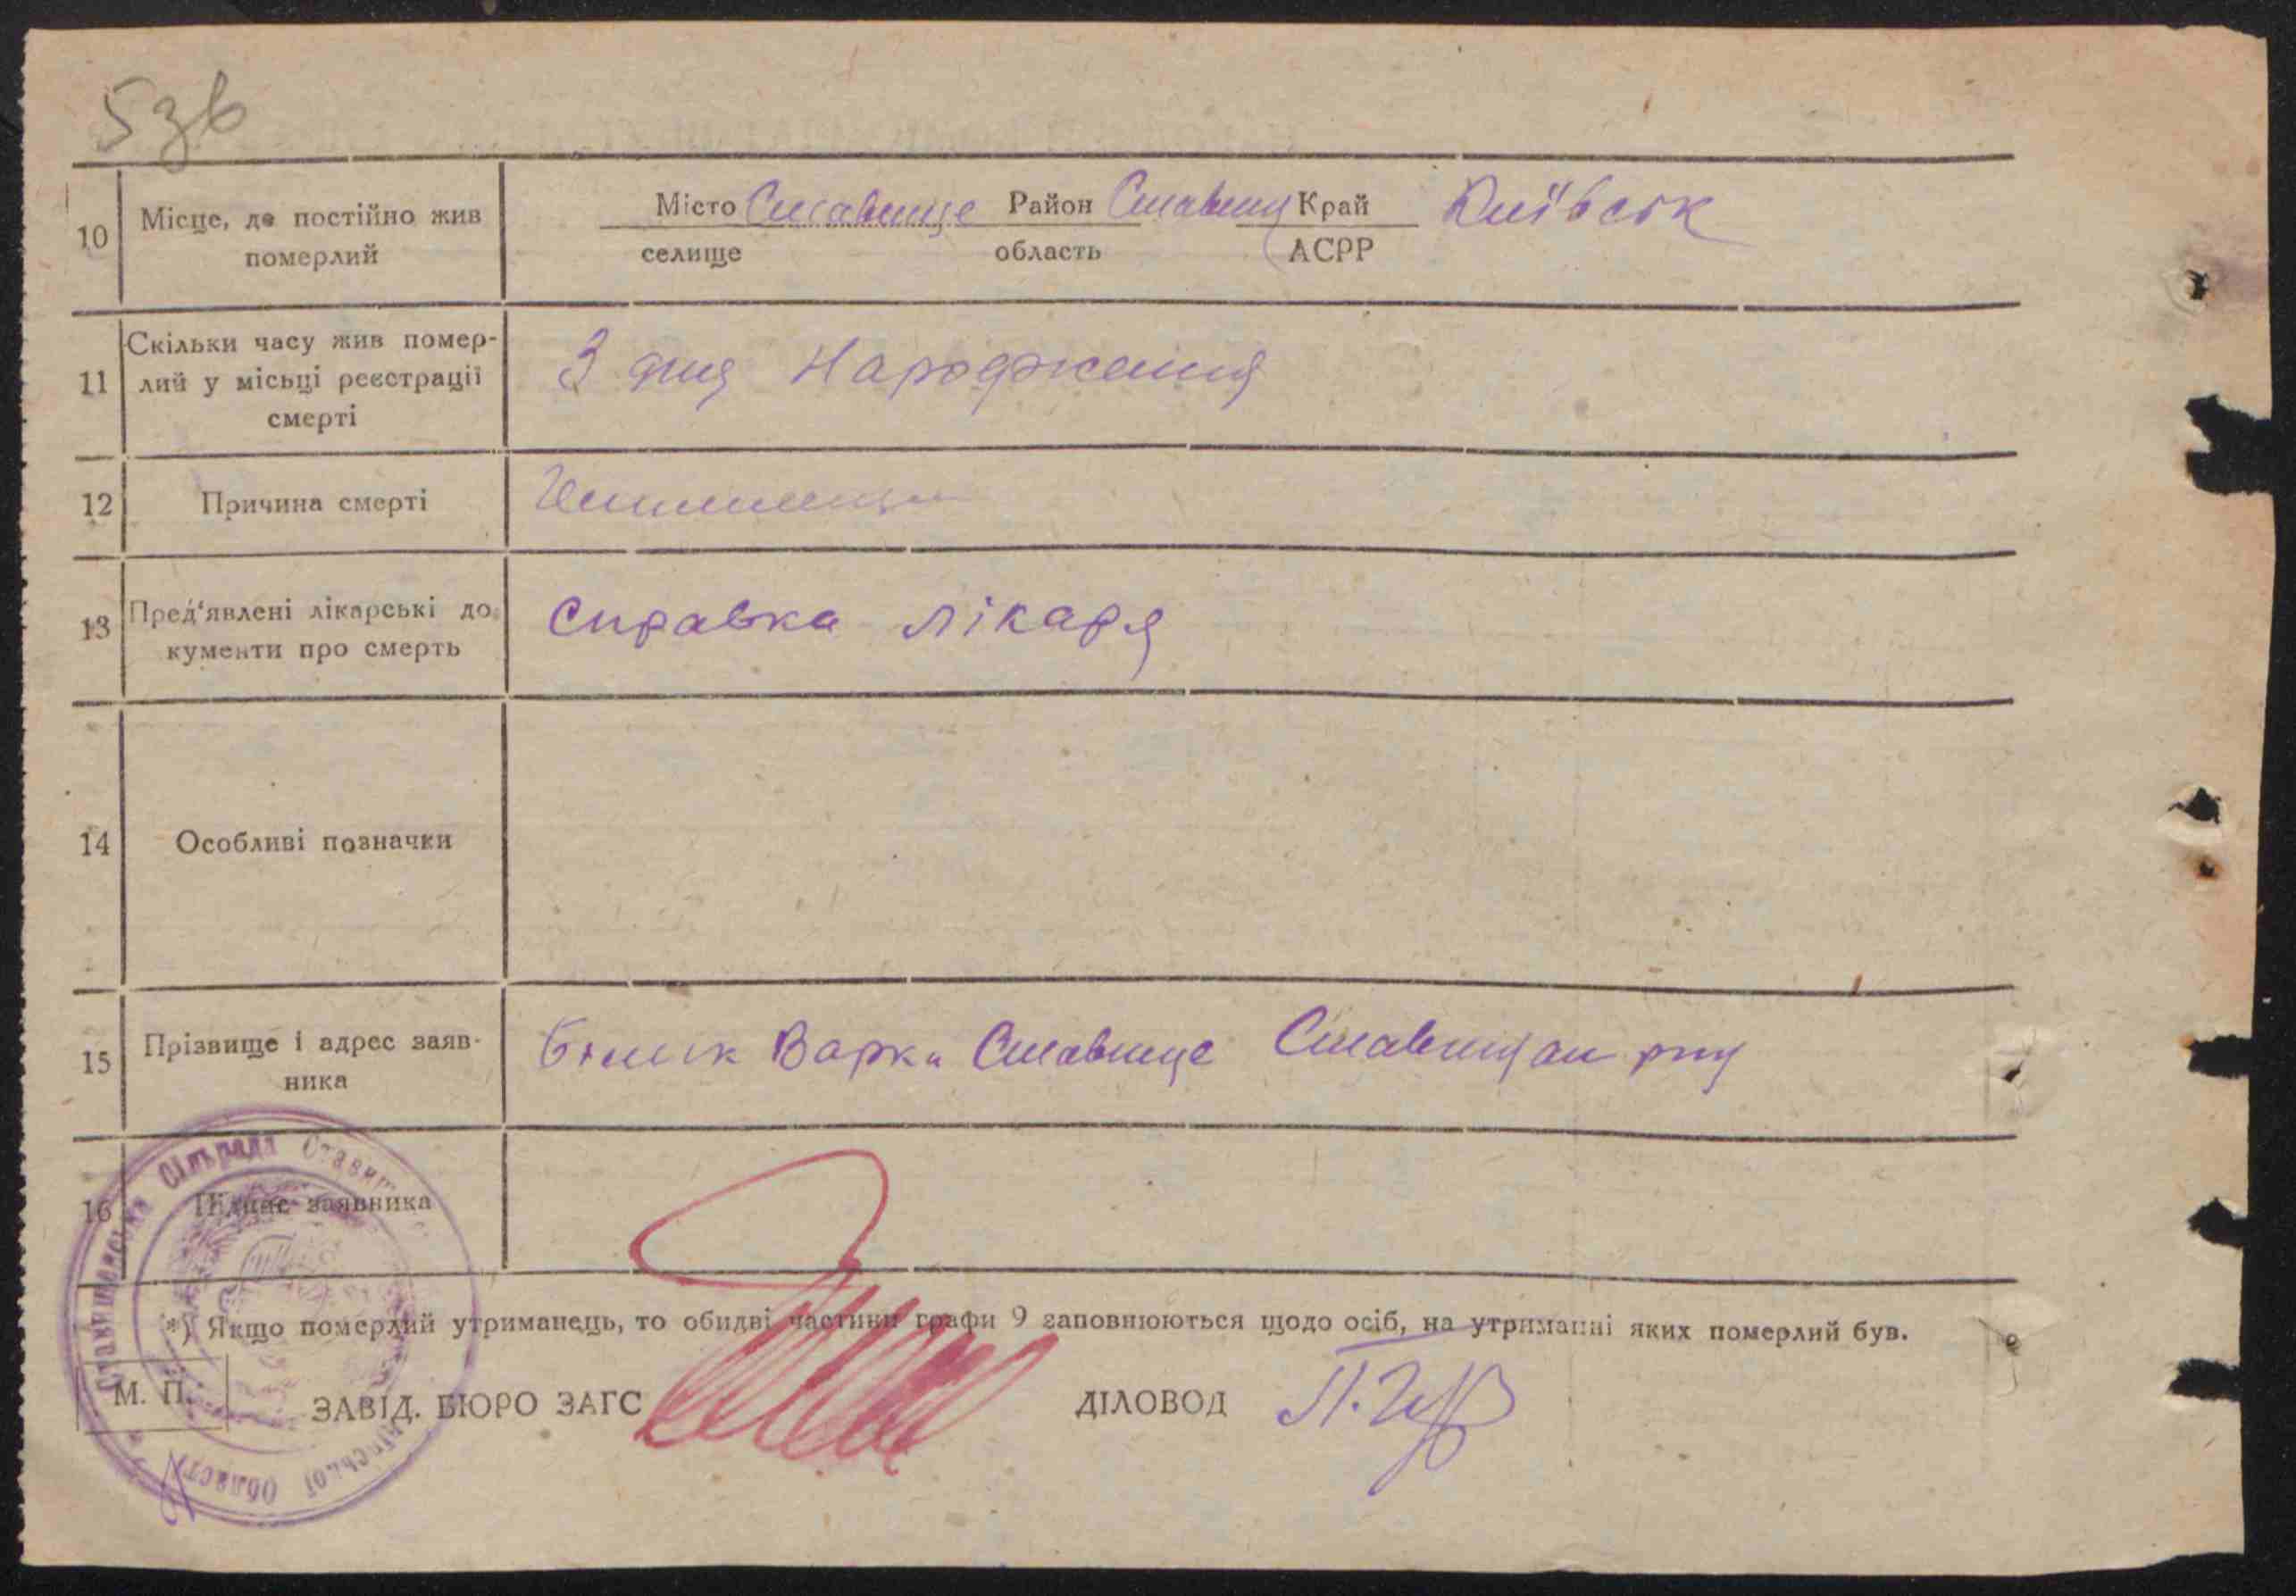 5зв
10 Місце, де постійно жив померлий
Місто Ставище Район Ставищ Край Київськ
селище область АСРР
11 Скільки часу жив помер-
лий у місьці реєстрації
смерті
З дня Народження
12 Причина смерті
13 Пред'явлені лікарські до
кументи про смерть
Справка лікаря
14 Особливі позначки
15 Прізвище і адрес заяв-
ника
Варка Ставище Ставищан рну
16 Підпис заявника
Ставищанська Сільрада Ставищ
ської Област
*) Якщо померлий утриманець, то обидві частини графи 9 заповнюються щодо осіб, на утриманні яких померлий був.
М. П.
ЗАВІД. БЮРО ЗАГС ДІЛОВОД